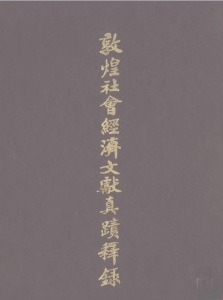 敦煌社會經濟文獻真蹟釋錄